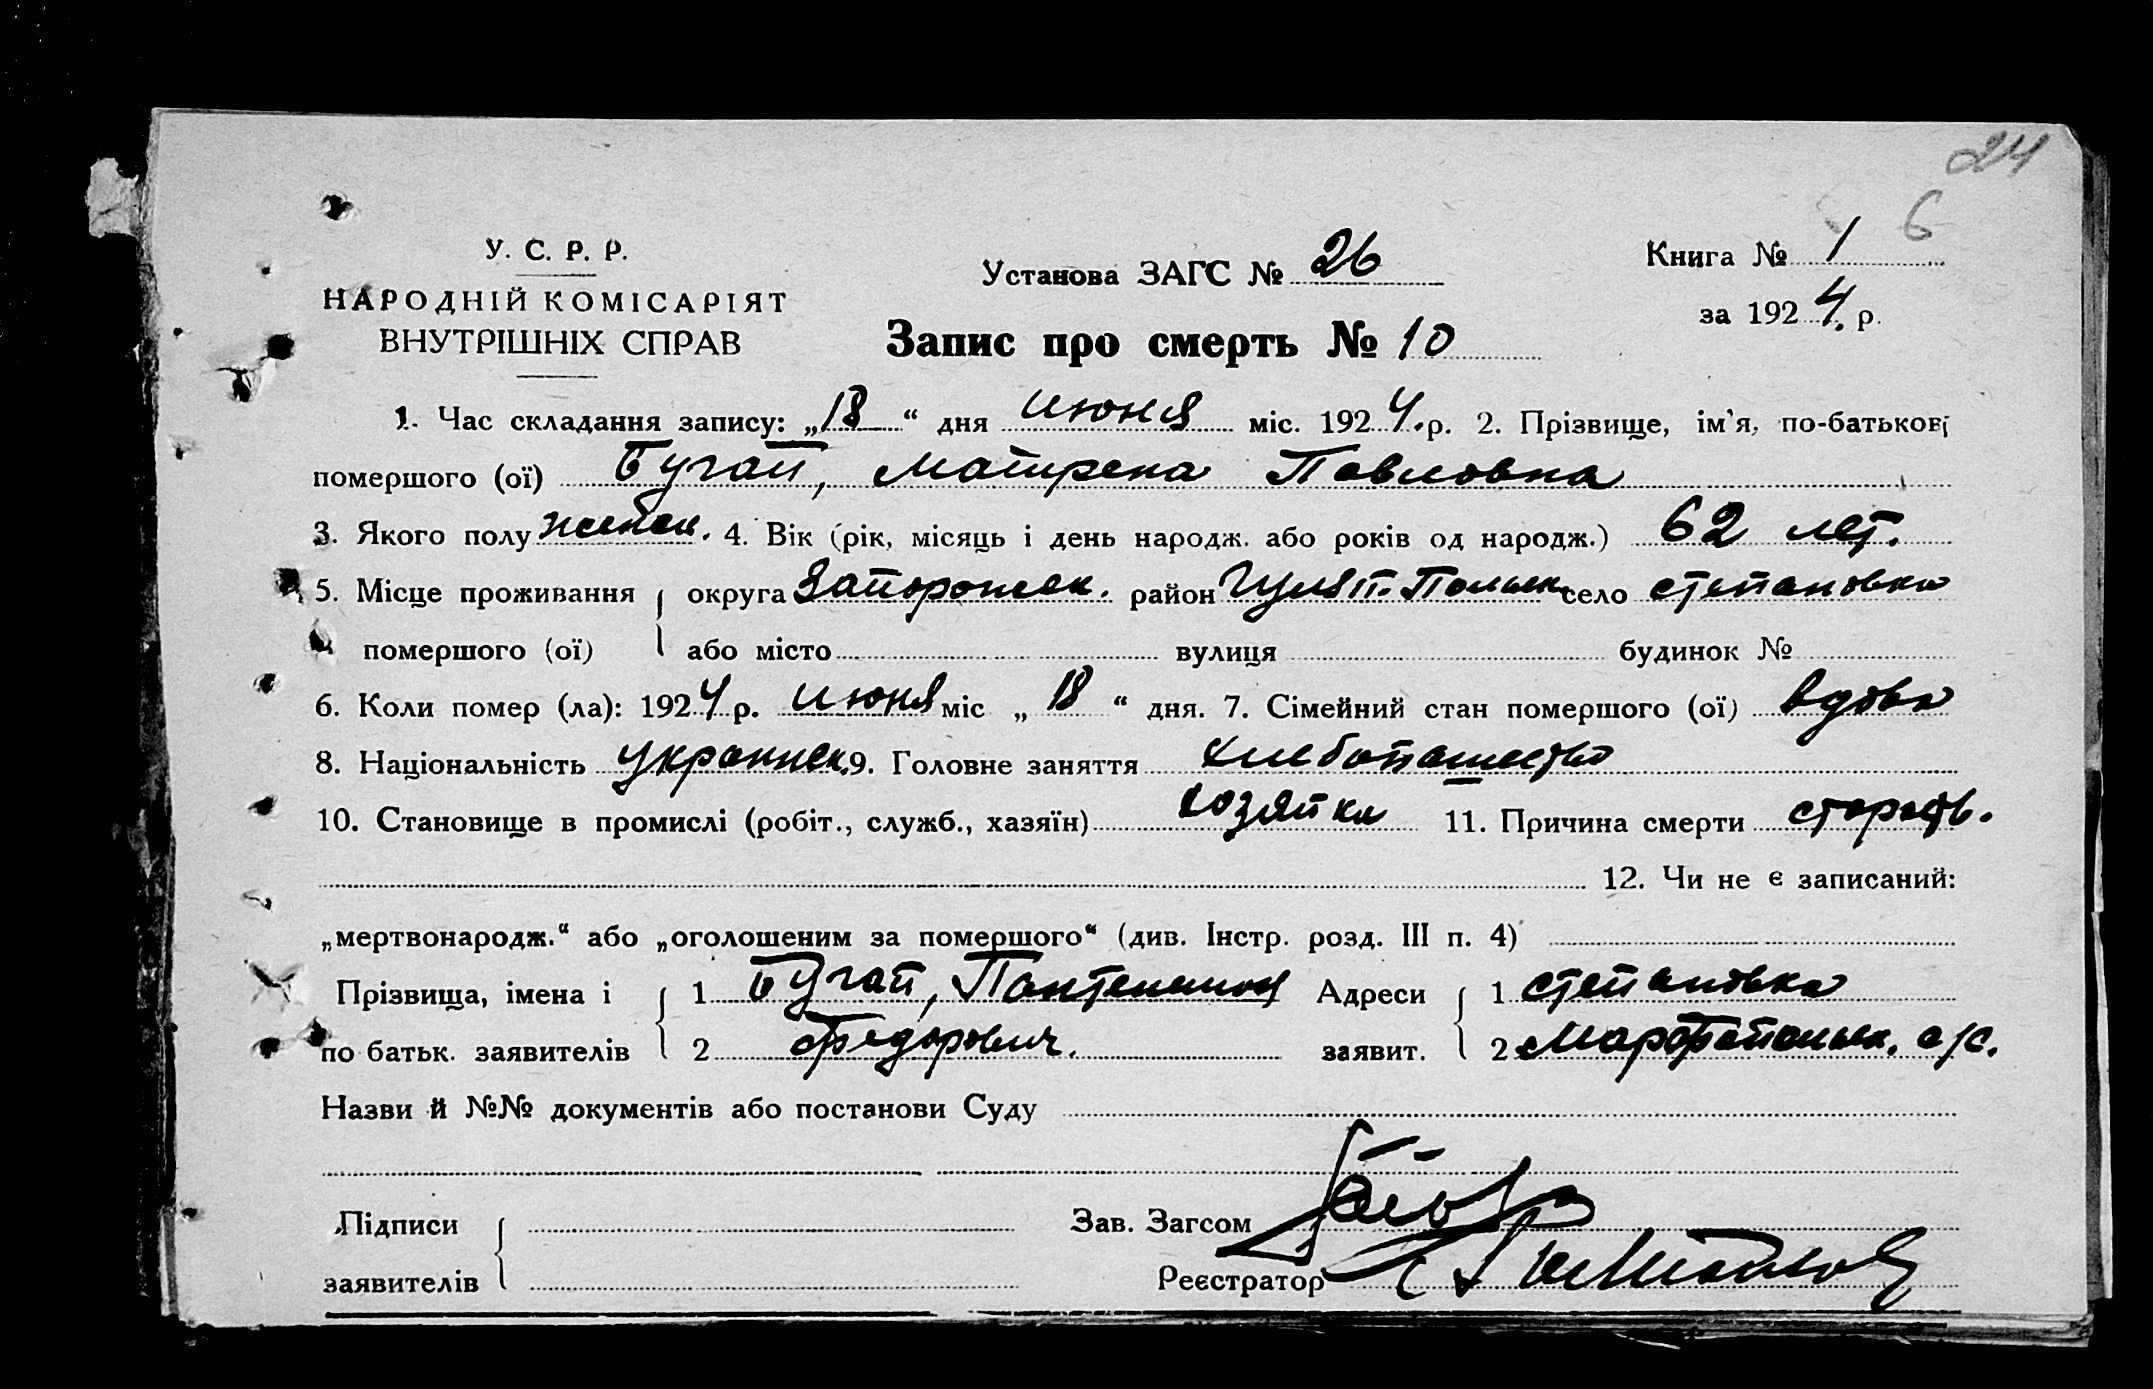 24
6
У. С. Р. Р.
НАРОДНІЙ КОМІСАРІЯТ
ВНУТРІШНІХ СПРАВ
Установа ЗАГС № 26
Книга № 1
за 1924 р.
Запис про смерть № 10
1. Час складання запису: „18“ дня июня міс. 1924 р. 2. Прізвище, ім'я, по-батькові
помершого (ої) Бугай, Матрена Павловна
3. Якого полу женск. 4. Вік (рік, місяць і день народж. або років од народж.) 62 лет.
5. Місце проживання округа Запорожск. район Гуляп.-Польск село степановка
помершого (ої) або місто вулиця будинок №
6. Коли помер (ла): 1924 р. июня міс „18“ дня. 7. Сімейний стан помершого (ої) вдова
8. Національність украинск. 9. Головне заняття хлебопашество
10. Становище в промислі (робіт., служб., хазяїн) хозяйка 11. Причина смерти старость.
12. Чи не є записаний:
„мертвонародж.“ або „оголошеним за помершого“ (див. Інстр. розд. III п. 4)
Прізвища, імена і 1 Бугай, Пантелимон Адреси 1 степановка
по батьк. заявителів 2 Федорович. заявит. 2 Марфопольск. с/с.
Назви й №№ документів або постанови Суду
Підписи
заявителів
Зав. Загсом
Реєстратор